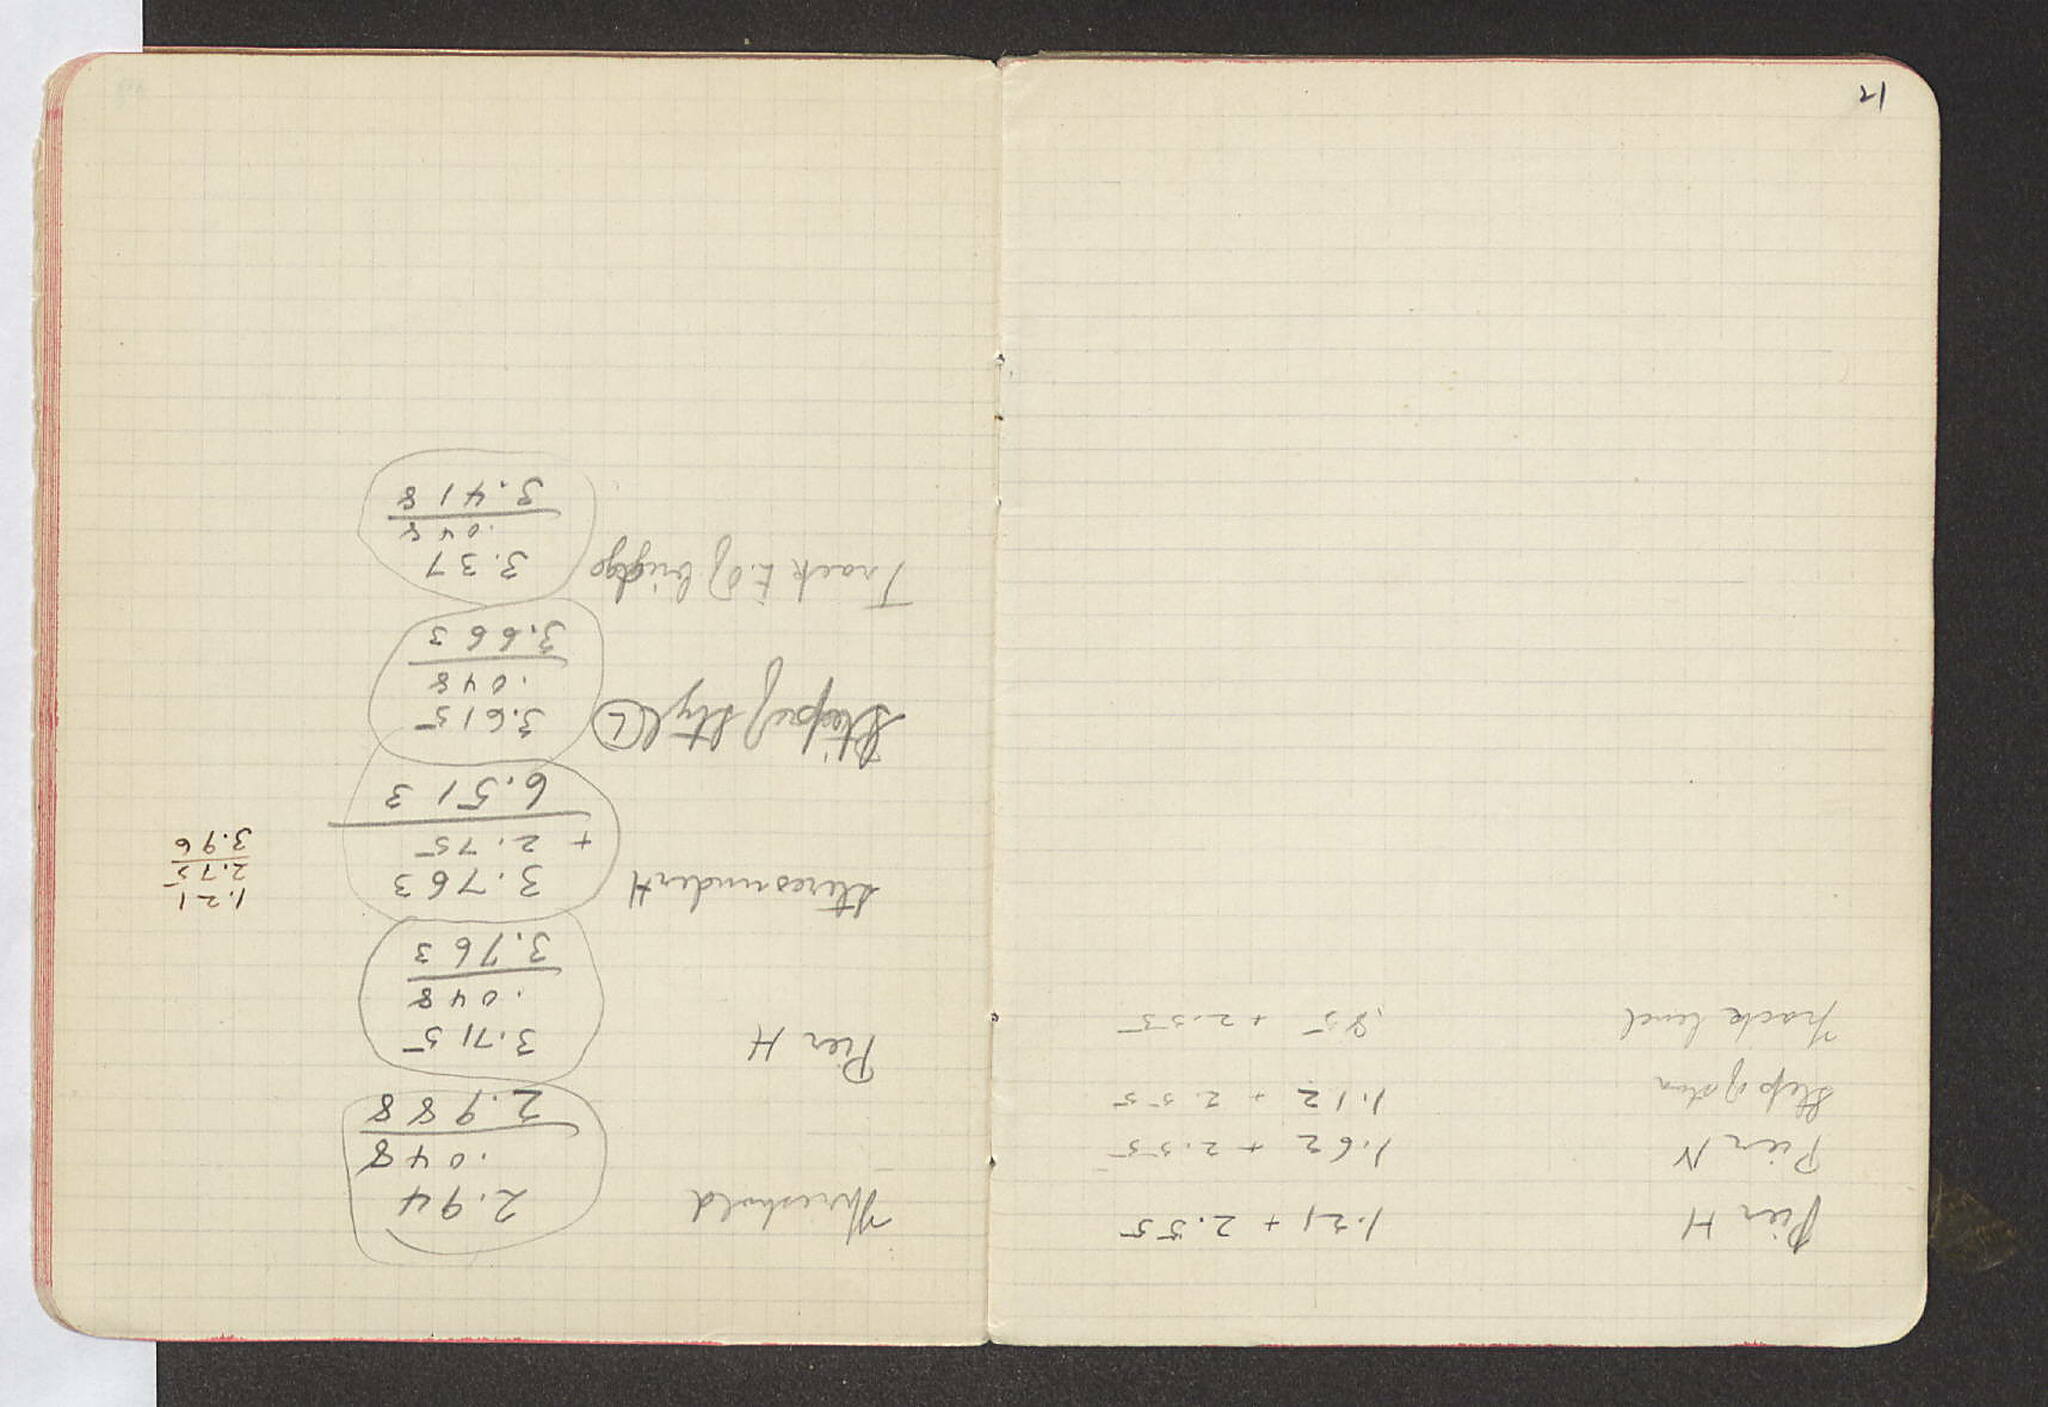 Pier H 1.21 + 2.55
Pier N 1.62 + 2.55
Step of ston 1.12 + 2.55
Track level .85 + 2.55
Threshold 2.94
.048
2.988
Pier H 3.715
.048
3.763
stereo under H 3.763
+ 2.75
6.513
1.21
2.75
3.96
Step of style L 3.615
.048
3.663
Track E. of bridge 3.37
.048
3.418
21